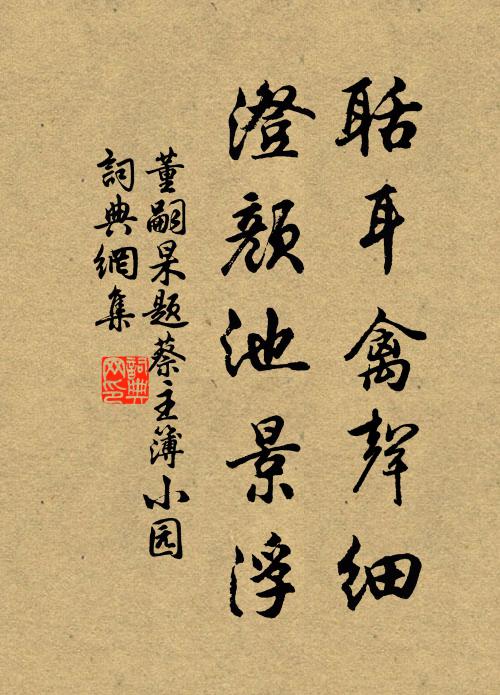 聒耳禽聲細
澄顏池景浮
董嗣杲题蔡主簿小园
詞典網集
詞典
网印